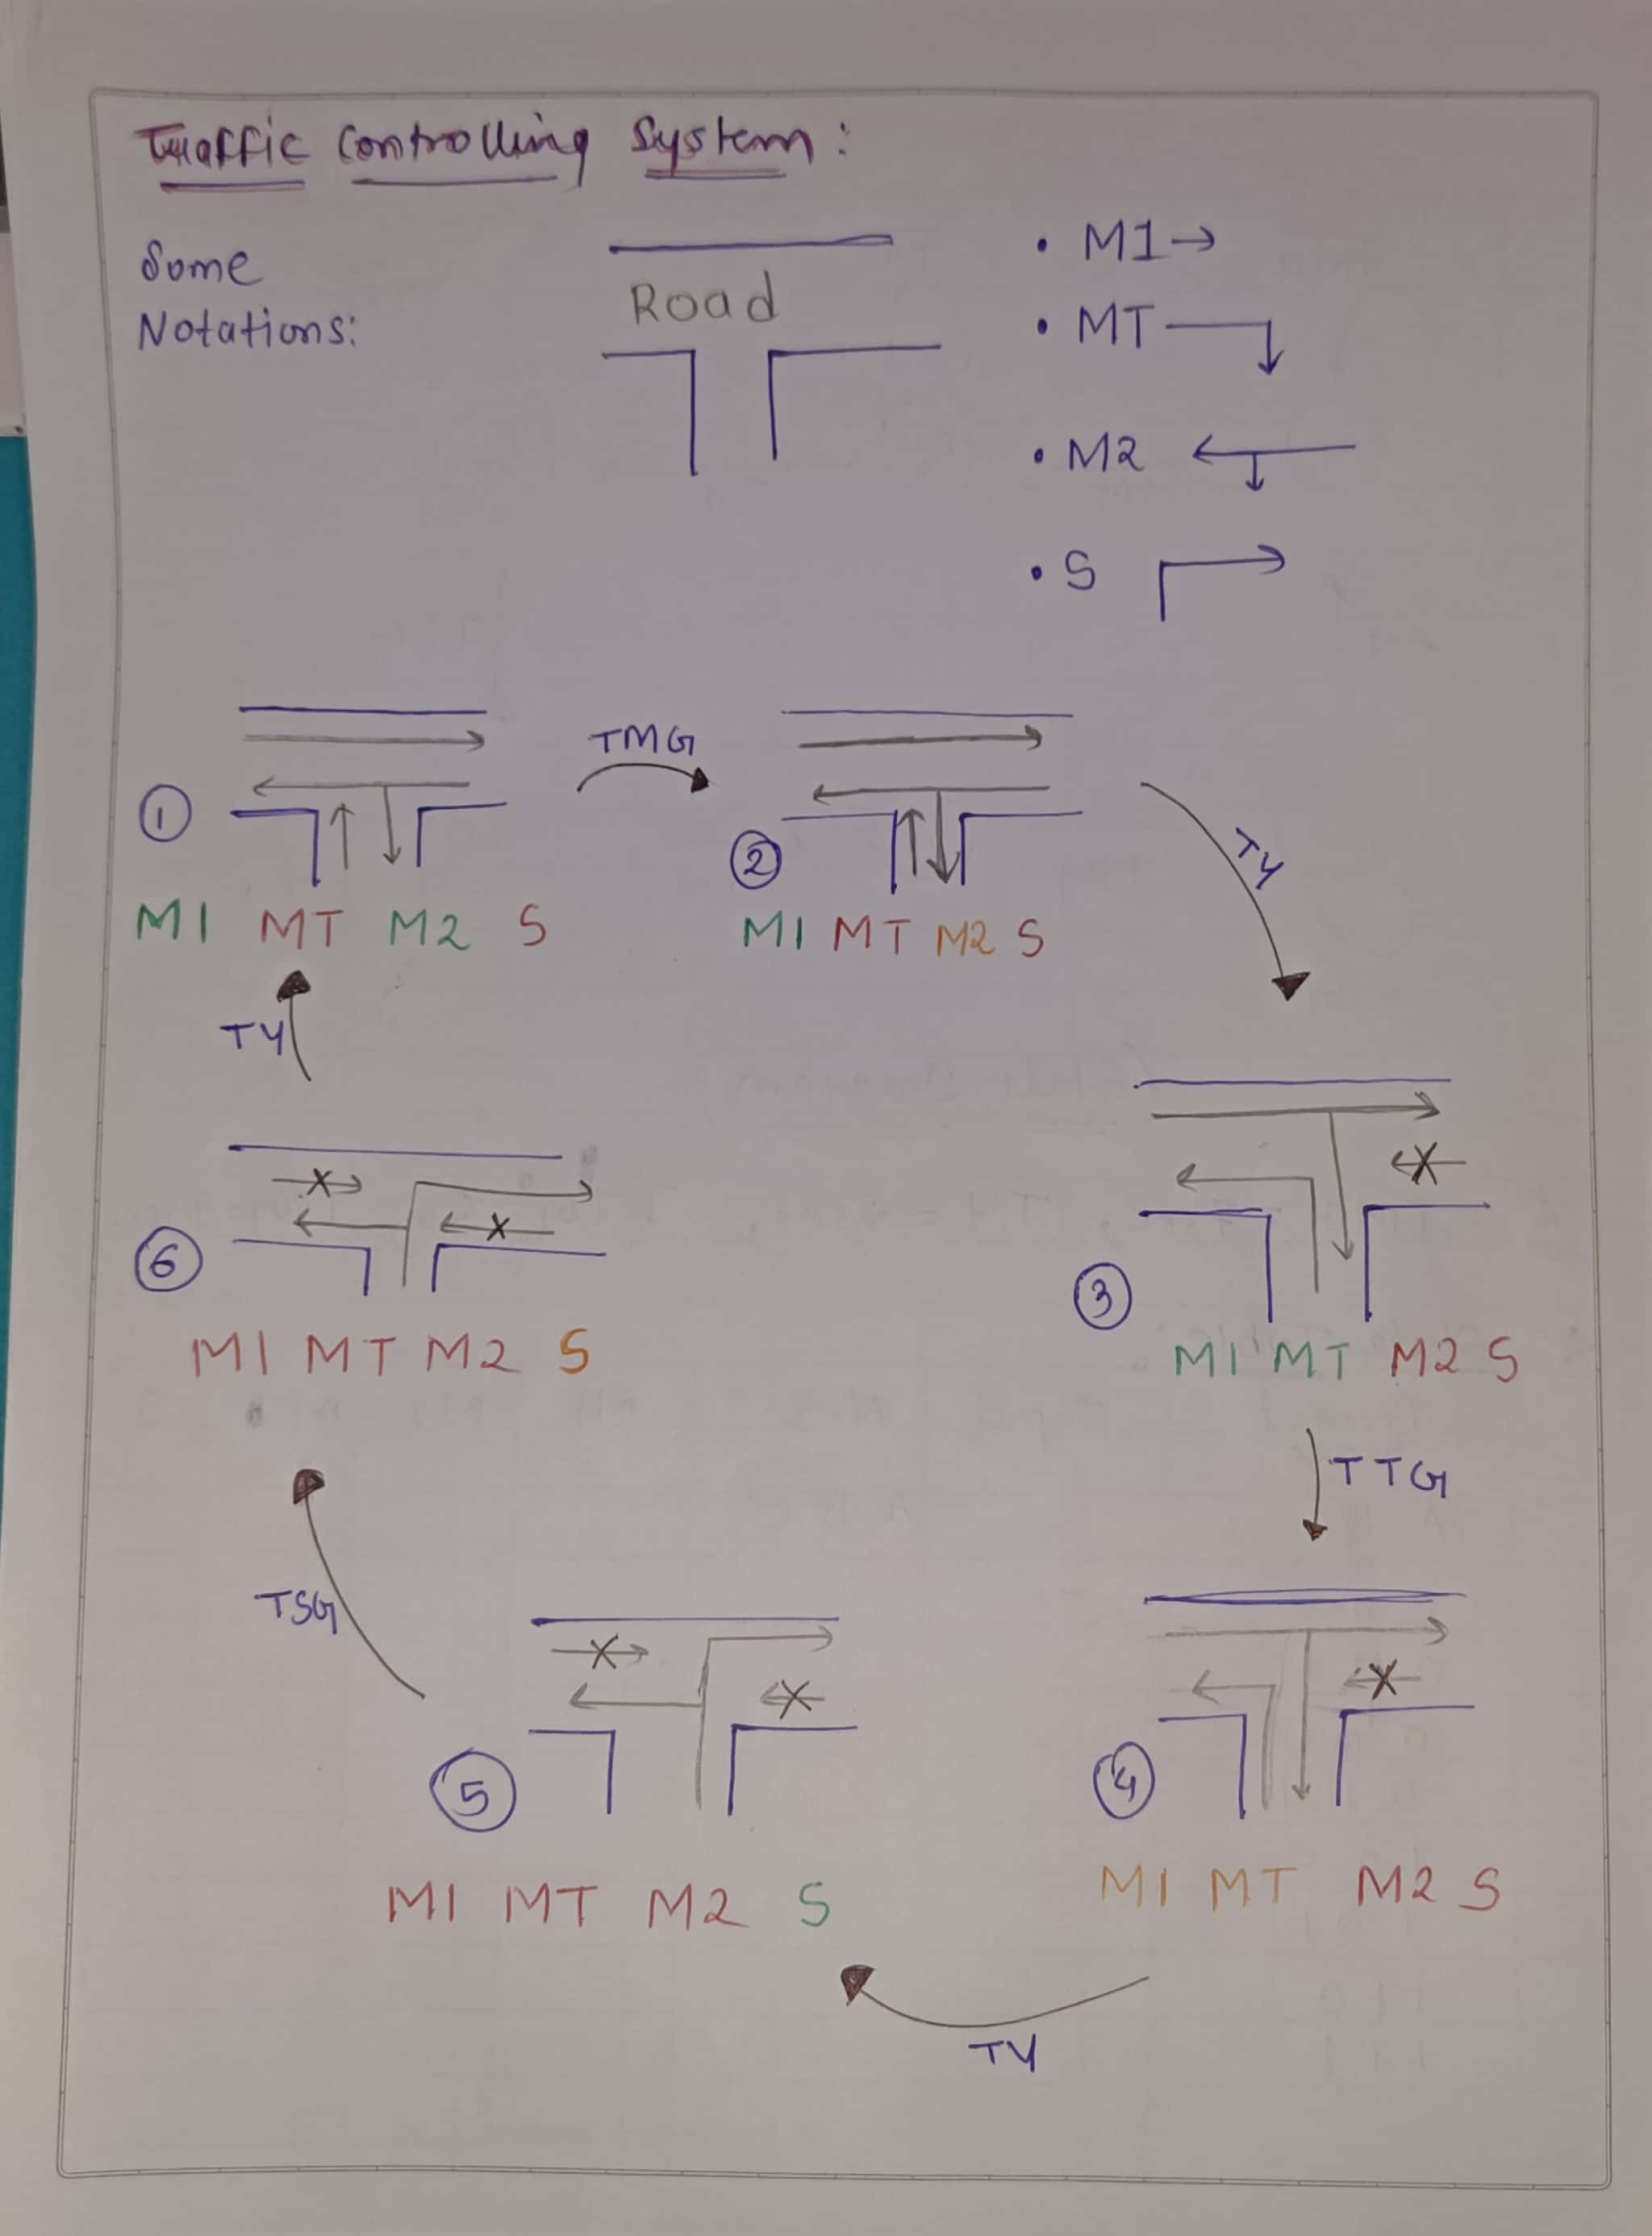 Traffic Controlling System:
Some
Notations:
Road
• M1→
• MT
• M2
• S
TMG
①
M1 MT M2 S
②
M1 MT M2 S
TY
TY
③
M1 MT M2 S
⑥
M1 MT M2 S
TTG
TSG
⑤
M1 MT M2 S
④
M1 MT M2 S
TY